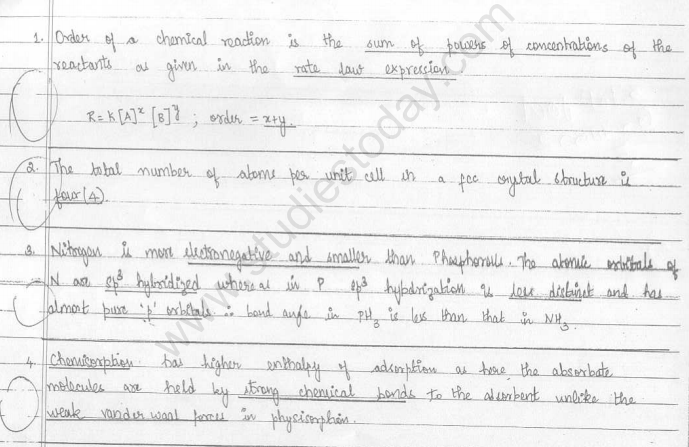 1. Order of a chemical reaction is the sum of powers of concentrations of the
reactants as given in the rate law expression.
R = K[A]^x [B]^y ; order = x+y.
2. The total number of atoms per unit cell in a fcc crystal structure is
four (4).
3. Nitrogen is more electronegative and smaller than Phosphorus. The atomic orbitals of
N are sp³ hybridized whereas in P sp³ hybridization is less distinct and has
almost pure 'p' orbitals ∴ bond angle in PH₃ is less than that in NH₃.
4. Chemisorption has higher enthalpy of adsorption as here the absorbate
molecules are held by strong chemical bonds to the adsorbent unlike the
weak vander waal forces in physisorption.
www.studiestoday.com